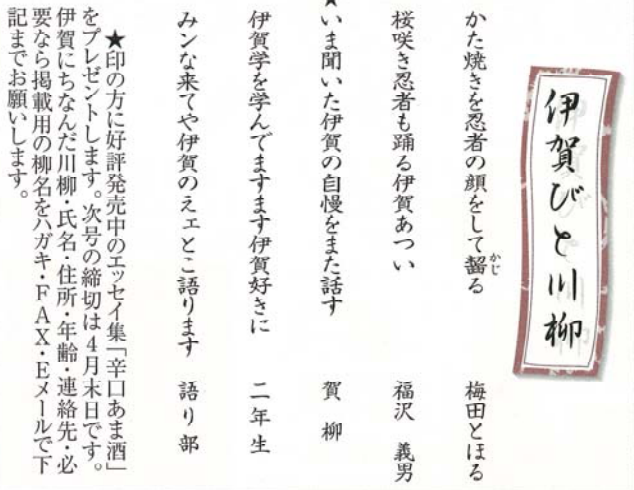 伊賀びと川柳
かた焼きを忍者の顔をして齧る 梅田とほる
かじ
桜咲き忍者も踊る伊賀あつい 福沢 義男
★いま聞いた伊賀の自慢をまた話す 賀 柳
伊賀学を学んでますます伊賀好きに 二年生
みンな来てや伊賀のえエとこ語ります 語り部
★印の方に好評発売中のエッセイ集「辛口あま酒」
をプレゼントします。次号の締切は4月末日です。
伊賀にちなんだ川柳・氏名・住所・年齢・連絡先・必
要なら掲載用の柳名をハガキ・FAX・Eメールで下
記までお願いします。